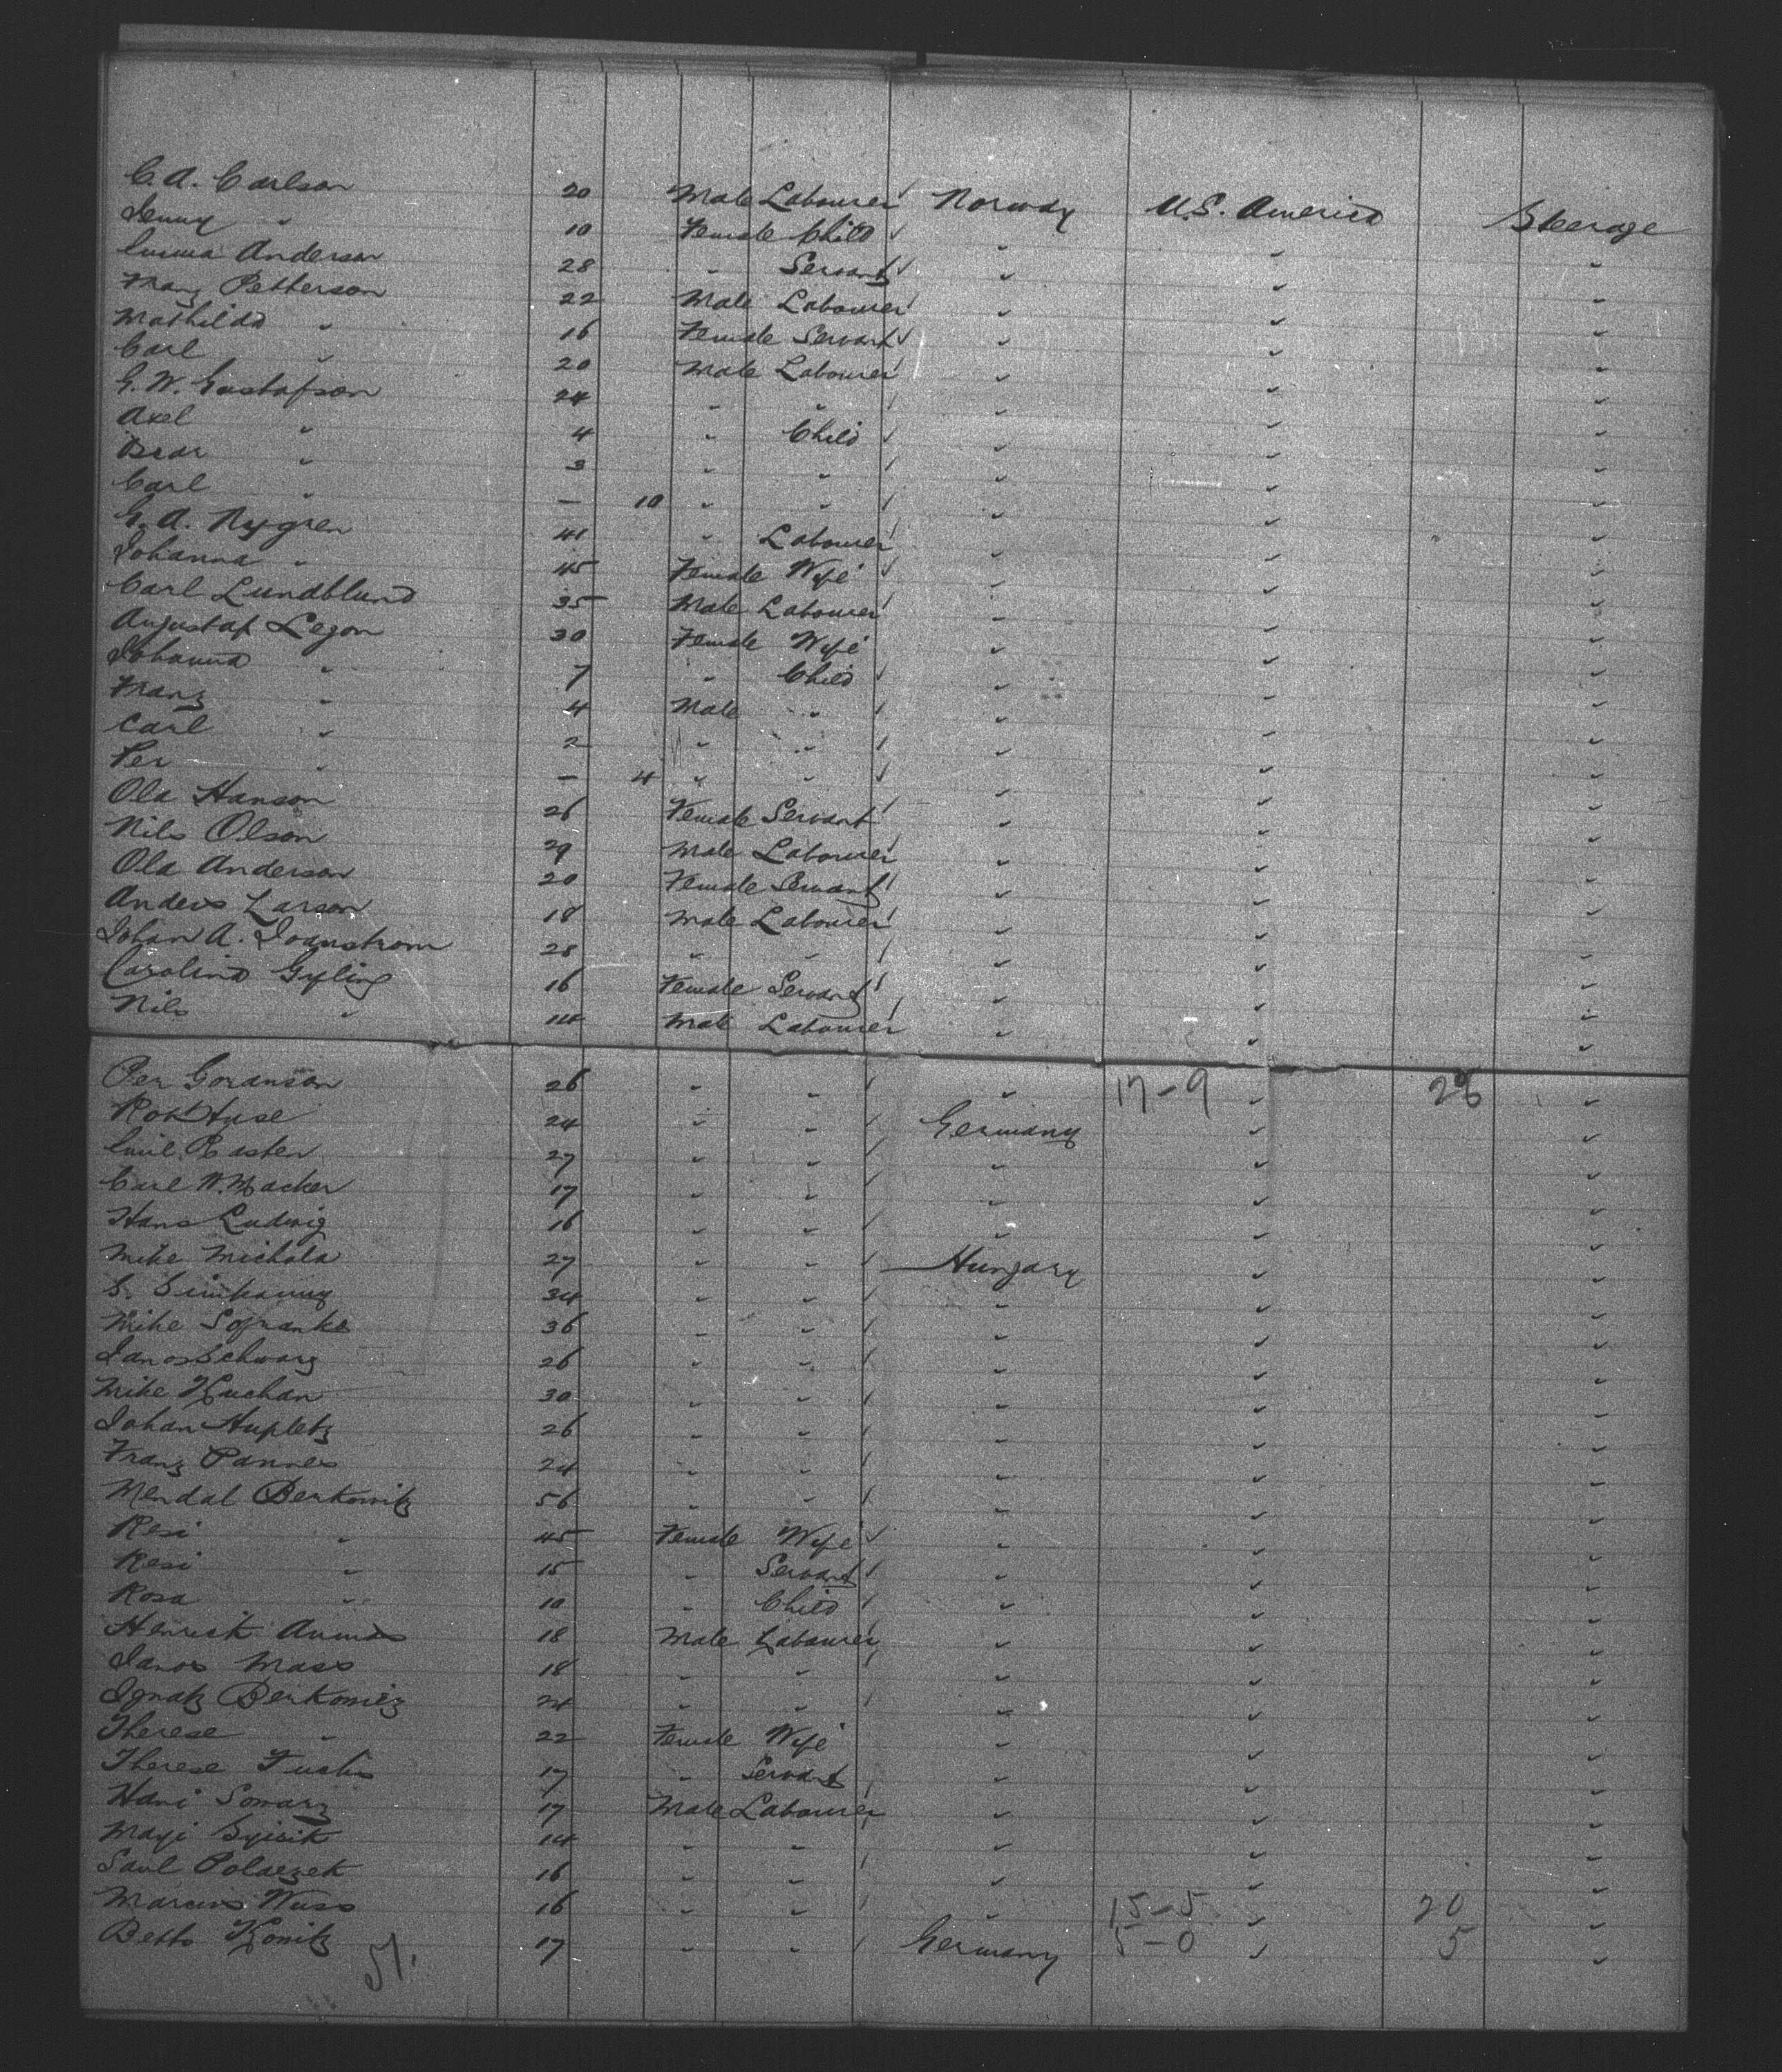 C. A. Carlson 20 Male Labourer Norway U.S. America Steerage
Jenny " 10 Female Child " " "
Emma Anderson 28 " Servant " " "
Franz Petterson 22 Male Labourer " " "
Mathilda " 16 Female Servant " " "
Carl " 20 Male Labourer " " "
G. W. Gustafson 24 " " " " "
Axel " 4 " Child " " "
Oscar " 3 " " " " "
Carl " — 10 " " " " "
G. A. Nygren 41 " Labourer " " "
Johanna " 45 Female Wife " " "
Carl Lundblund 35 Male Labourer " " "
Augustaf Legon 30 Female Wife " " "
Johanna " 7 " Child " " "
Franz " 4 Male " " " "
Carl " 2 " " " " "
Per " — 4 " " " " "
Ola Hanson 26 Female Servant " " "
Nils Olson 29 Male Labourer " " "
Ola Anderson 20 Female Servant " " "
Anders Larson 18 Male Labourer " " "
Johan A. 28 " " " " "
Carolina Gyling 16 Female Servant " " "
Nils " 14 Male Labourer " " "
Per Goranson 26 " " " 17-9 " 26 "
Robt Huse 24 " " Germany " "
Emil Raster 27 " " " " "
Carl W. Macker 17 " " " " "
Hans Ludwig 16 " " " " "
Mike Michala 27 " " Hungary " "
S. 34 " " " " "
Mike Sofranko 36 " " " " "
Janos Schwarz 26 " " " " "
Mike Kuchan 30 " " " " "
Johan Hupletz 26 " " " " "
Franz Pannes 24 " " " " "
Mendal Berkowitz 56 " " " " "
Resi " 45 Female Wife " " "
Resi " 15 " Servant " " "
Rosa " 10 " Child " " "
Henrick 18 Male Labourer " " "
Janos Mass 18 " " " " "
Ignatz Berkowiez 24 " " " " "
Therese " 22 Female Wife " " "
Therese Fuchs 17 " Servant " " "
Hani 17 Male Labourer " " "
14 " " " " "
Saul Polaczek 16 " " " " "
Marcus Wuss 16 " " " 15-5 " 20 "
Betts Konitz 17 " " Germany 5-0 " 5 "
51.